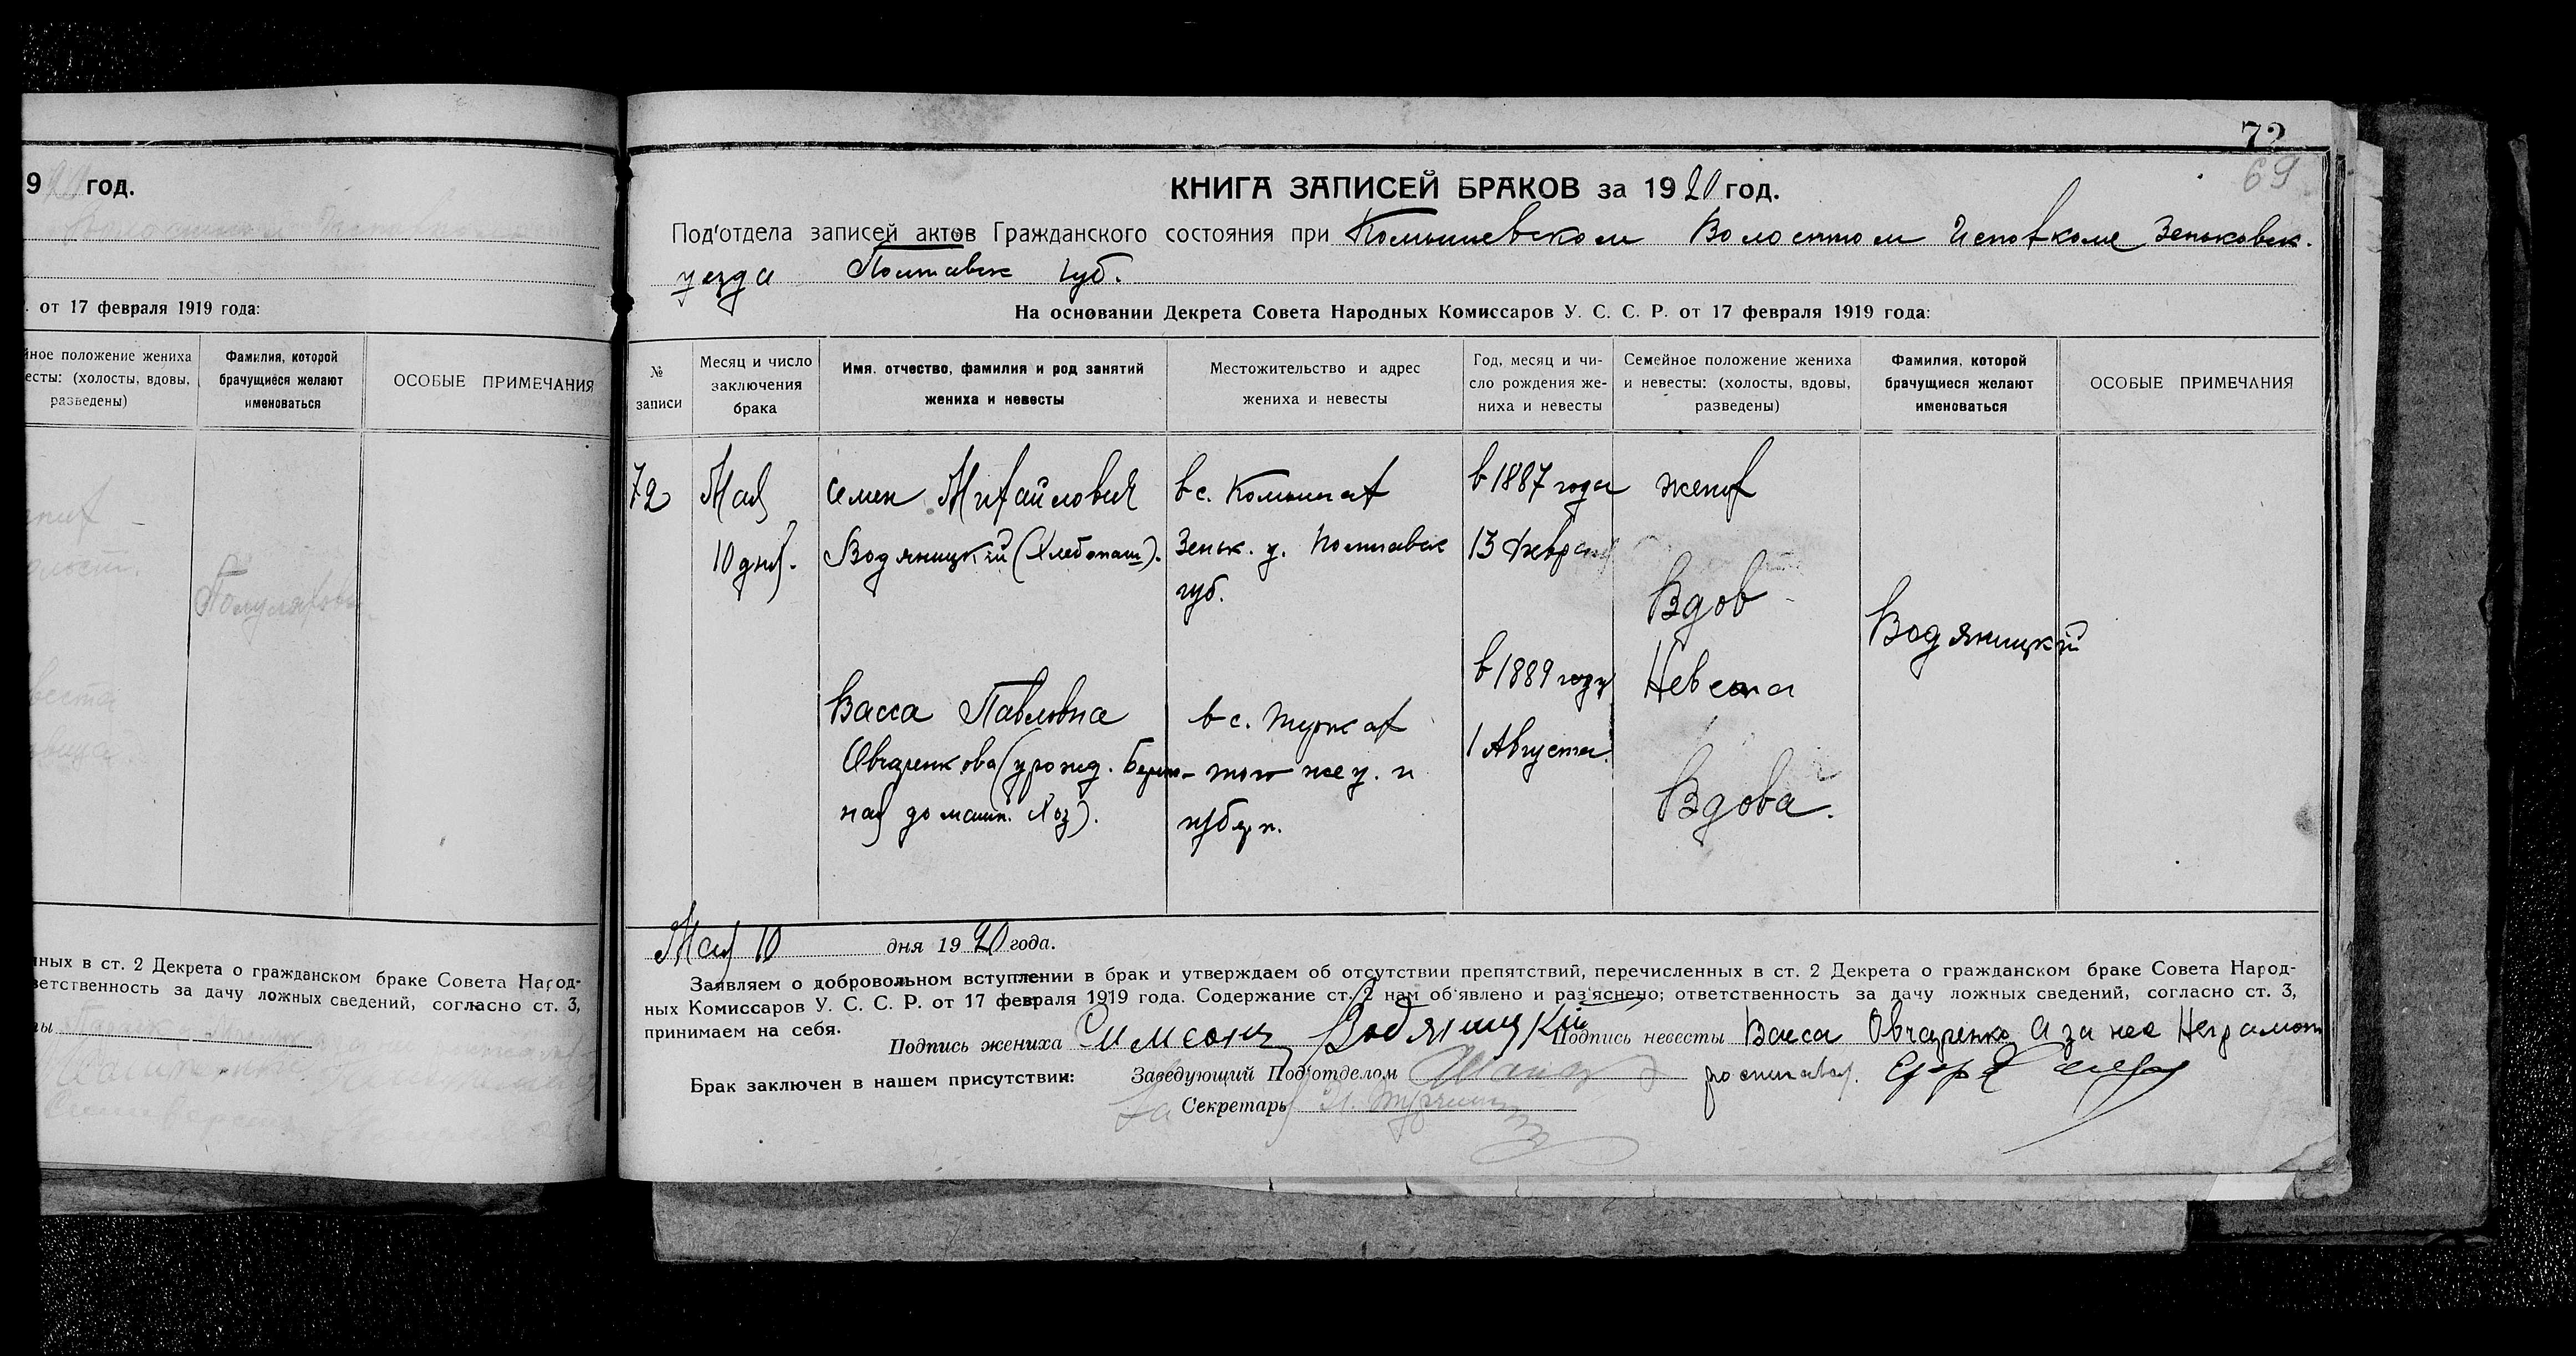 9 20 год.
. от 17 февраля 1919 года:
йное положение жениха
есты: (холосты, вдовы,
разведены)
Фамилия, которой
брачущиеся желают
именоваться
ОСОБЫЕ ПРИМЕЧАНИЯ
нных в ст. 2 Декрета о гражданском браке Совета Народ-
ветственность за дачу ложных сведений, согласно ст. 3,
72
69
КНИГА ЗАПИСЕЙ БРАКОВ за 1920 год.
Под'отдела записей актов Гражданского состояния при Комышевском Волостном Исполкоме Зеньковск.
уезда Полтавск губ.
На основании Декрета Совета Народных Комиссаров У. С. С. Р. от 17 февраля 1919 года:
№
записи
Месяц и число
заключения
брака
Имя, отчество, фамилия и род занятий
жениха и невесты
Местожительство и адрес
жениха и невесты
Год, месяц и чи-
сло рождения же-
ниха и невесты
Семейное положение жениха
и невесты: (холосты, вдовы,
разведены)
Фамилия, которой
брачущиеся желают
именоваться
ОСОБЫЕ ПРИМЕЧАНИЯ
72
Мая
10 дня.
Семен Михайлович
Водяницкий (Хлебопаш).
в с. Комышах
Зеньк. у. Полтавск
губ.
в 1887 года
13 Февраля
жених
Вдов
Водяницкий
Васса Павловна
Овчаренкова (урожд.
ная домашн. Хоз).
в с.
того же у. и
губерн.
в 1889 году
1 Августа.
Невеста
Вдова.
Мая 10 дня 1920 года.
Заявляем о добровольном вступлении в брак и утверждаем об отсутствии препятствий, перечисленных в ст. 2 Декрета о гражданском браке Совета Народ-
ных Комиссаров У. С. С. Р. от 17 февраля 1919 года. Содержание ст. 2 нам об'явлено и раз'яснено; ответственность за дачу ложных сведений, согласно ст. 3,
принимаем на себя.
Подпись жениха Симеонъ Водяницкий Подпись невесты Васса Овчаренко а за нее Неграмот
Брак заключен в нашем присутствии: Заведующий Под'отделом
За Секретарь